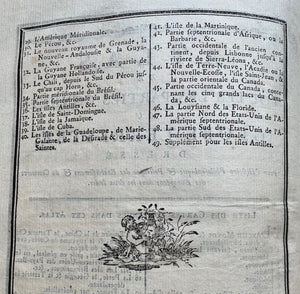 29. L'Amérique Méridionale.
30. Le Pérou, &c.
31. Le nouveau royaume de Grenade, la
Nouvelle-Andalousie & la Guyane.
32. La Guyane Françoise, avec partie
de la Guyane Hollandoise.
33. Le Chili, depuis le Sud du Pérou jusqu'au
cap Horn, &c.
34. Partie méridionale du Brésil.
35. Partie septentrionale du Brésil.
36. Les isles Antilles, &c.
37. L'isle de Saint-Domingue.
38. L'isle de la Jamaïque.
39. L'isle de Cuba.
40. Les isles de la Guadeloupe, de Marie-
Galante, de la Désirade & celles des
Saintes.
41. L'isle de la Martinique.
42. Partie septentrionale d'Afrique, ou
Barbarie, &c.
43. Partie occidentale de l'ancien continent,
depuis Lisbonne jusqu'à la
riviere de Sierra-Léona, &c.
44. L'isle de Terre-Neuve, l'Acadie ou la
Nouvelle-Ecosse, l'isle Saint-Jean &
la partie orientale du Canada.
45. Partie occidentale du Canada, contenant
les cinq grands lacs du Canada,
&c.
46. La Louysiane & la Floride.
47. La partie Nord des Etats-Unis de l'Amérique
septentrionale.
48. La partie Sud des Etats-Unis de l'Amérique
septentrionale.
49. Supplément pour les isles Antilles.